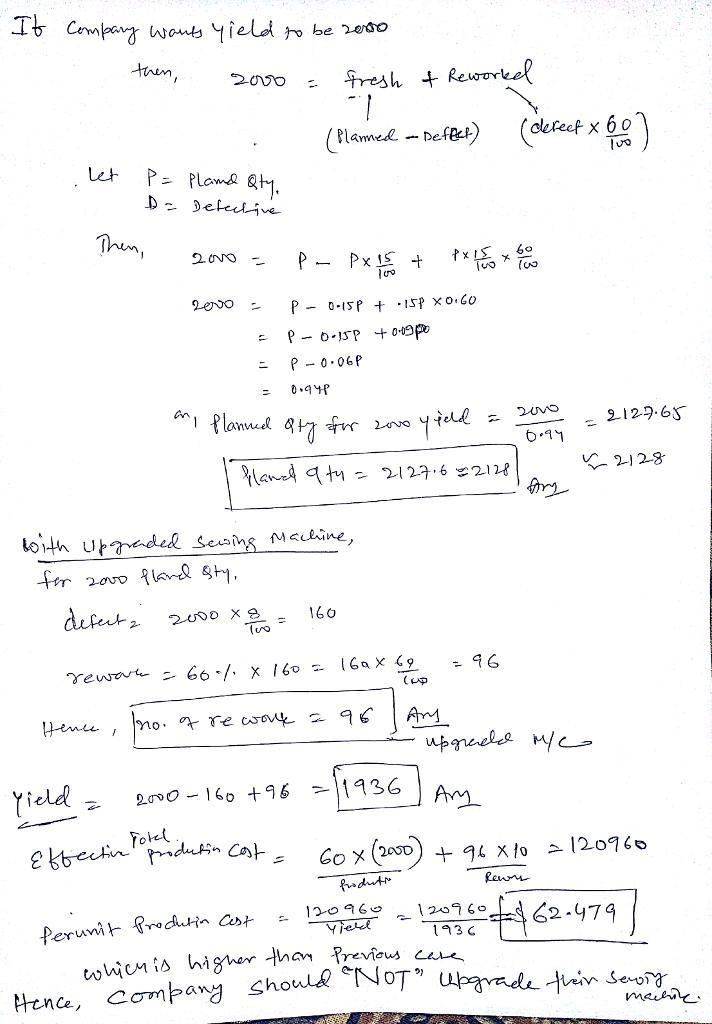 If Company wants yield to be 2000
then, 2000 = fresh + Reworked
(Planned - Defect) (defect x 60/100)
Let P = Pland Qty.
D = Defective
Then, 2000 = P - P x 15/100 + P x 15/100 x 60/100
2000 = P - 0.15P + .15P x 0.60
= P - 0.15P + 0.09P
= P - 0.06P
= 0.94P
or, Planned Qty for 2000 yield = 2000/0.94 = 2127.65
≈ 2128
Pland qty = 2127.6 ≈ 2128 Ans
With upgraded sewing Machine,
for 2000 Pland Qty,
defect = 2000 x 8/100 = 160
rework = 60% x 160 = 160 x 60/100 = 96
Hence, no. of rework = 96 Ans
upgraded M/C
Yield = 2000 - 160 + 96 = 1936 Ans
Effective Total production Cost = 60 x (2000) + 96 x 10 = 120960
Production Rework
Perunit Production Cost = 120960/Yield = 120960/1936 = $62.479
which is higher than Previous case
Hence, Company should "NOT" Upgrade their Sewing
machine.